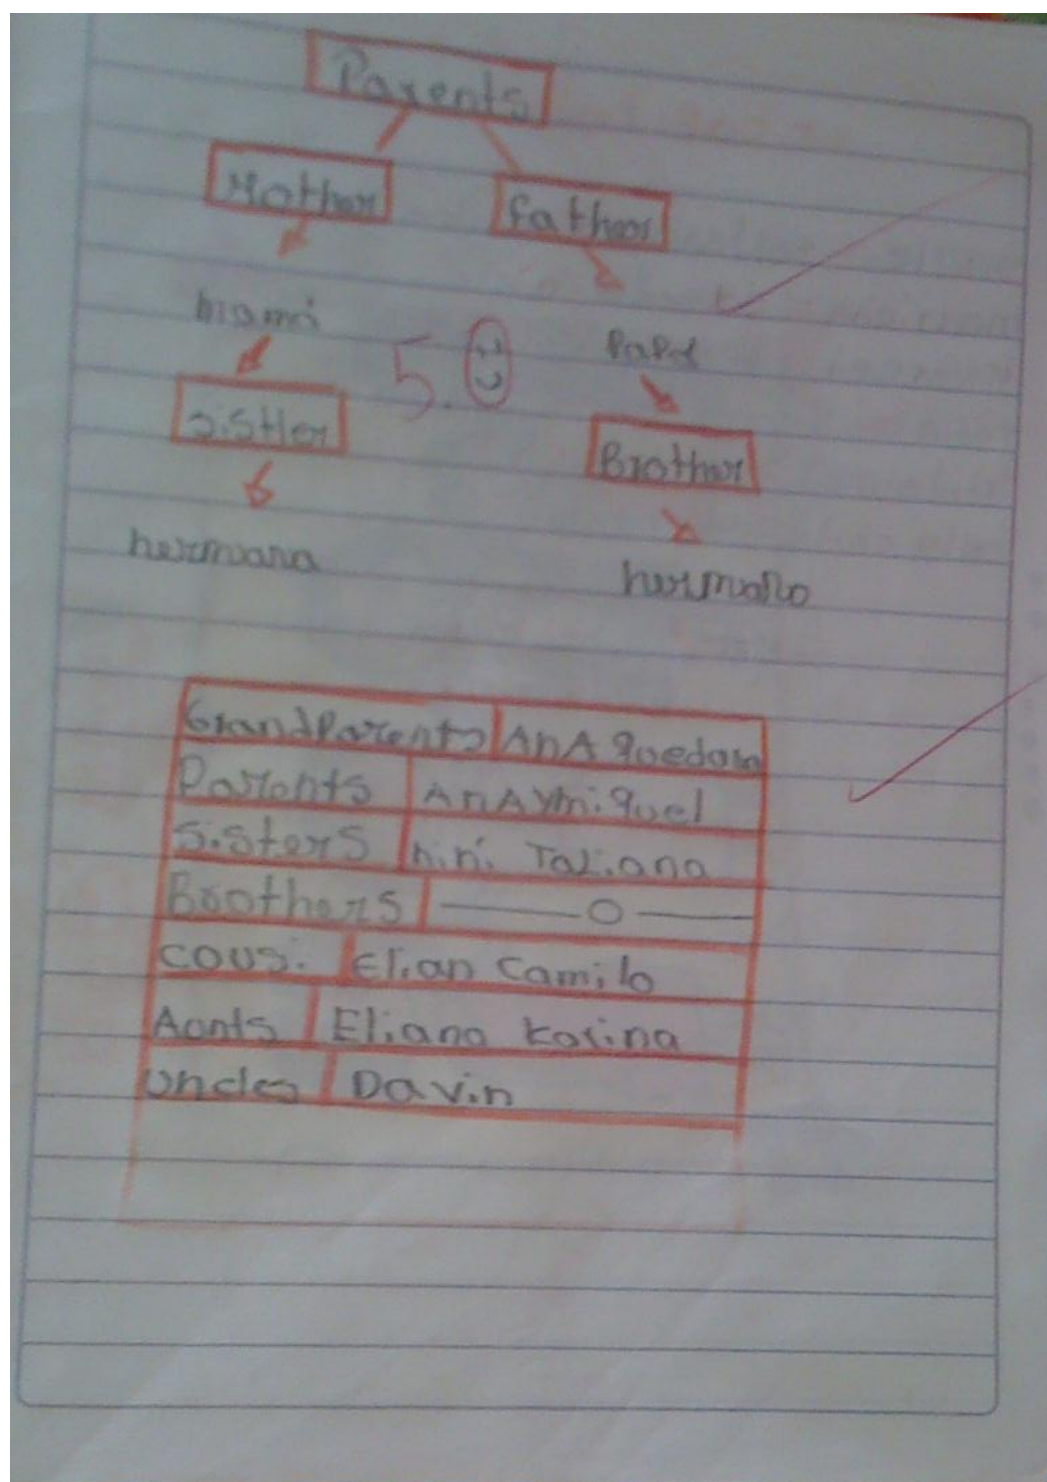 Parents
Mother father
mamá papá
5.0
sistter Brother
hermana hermano
GrandParents AnA
Parents AnA Y mi9uel
sisters Tatiana
Brothers —O—
cousi. Elian camilo
Aonts Eliana karina
uncles Davin